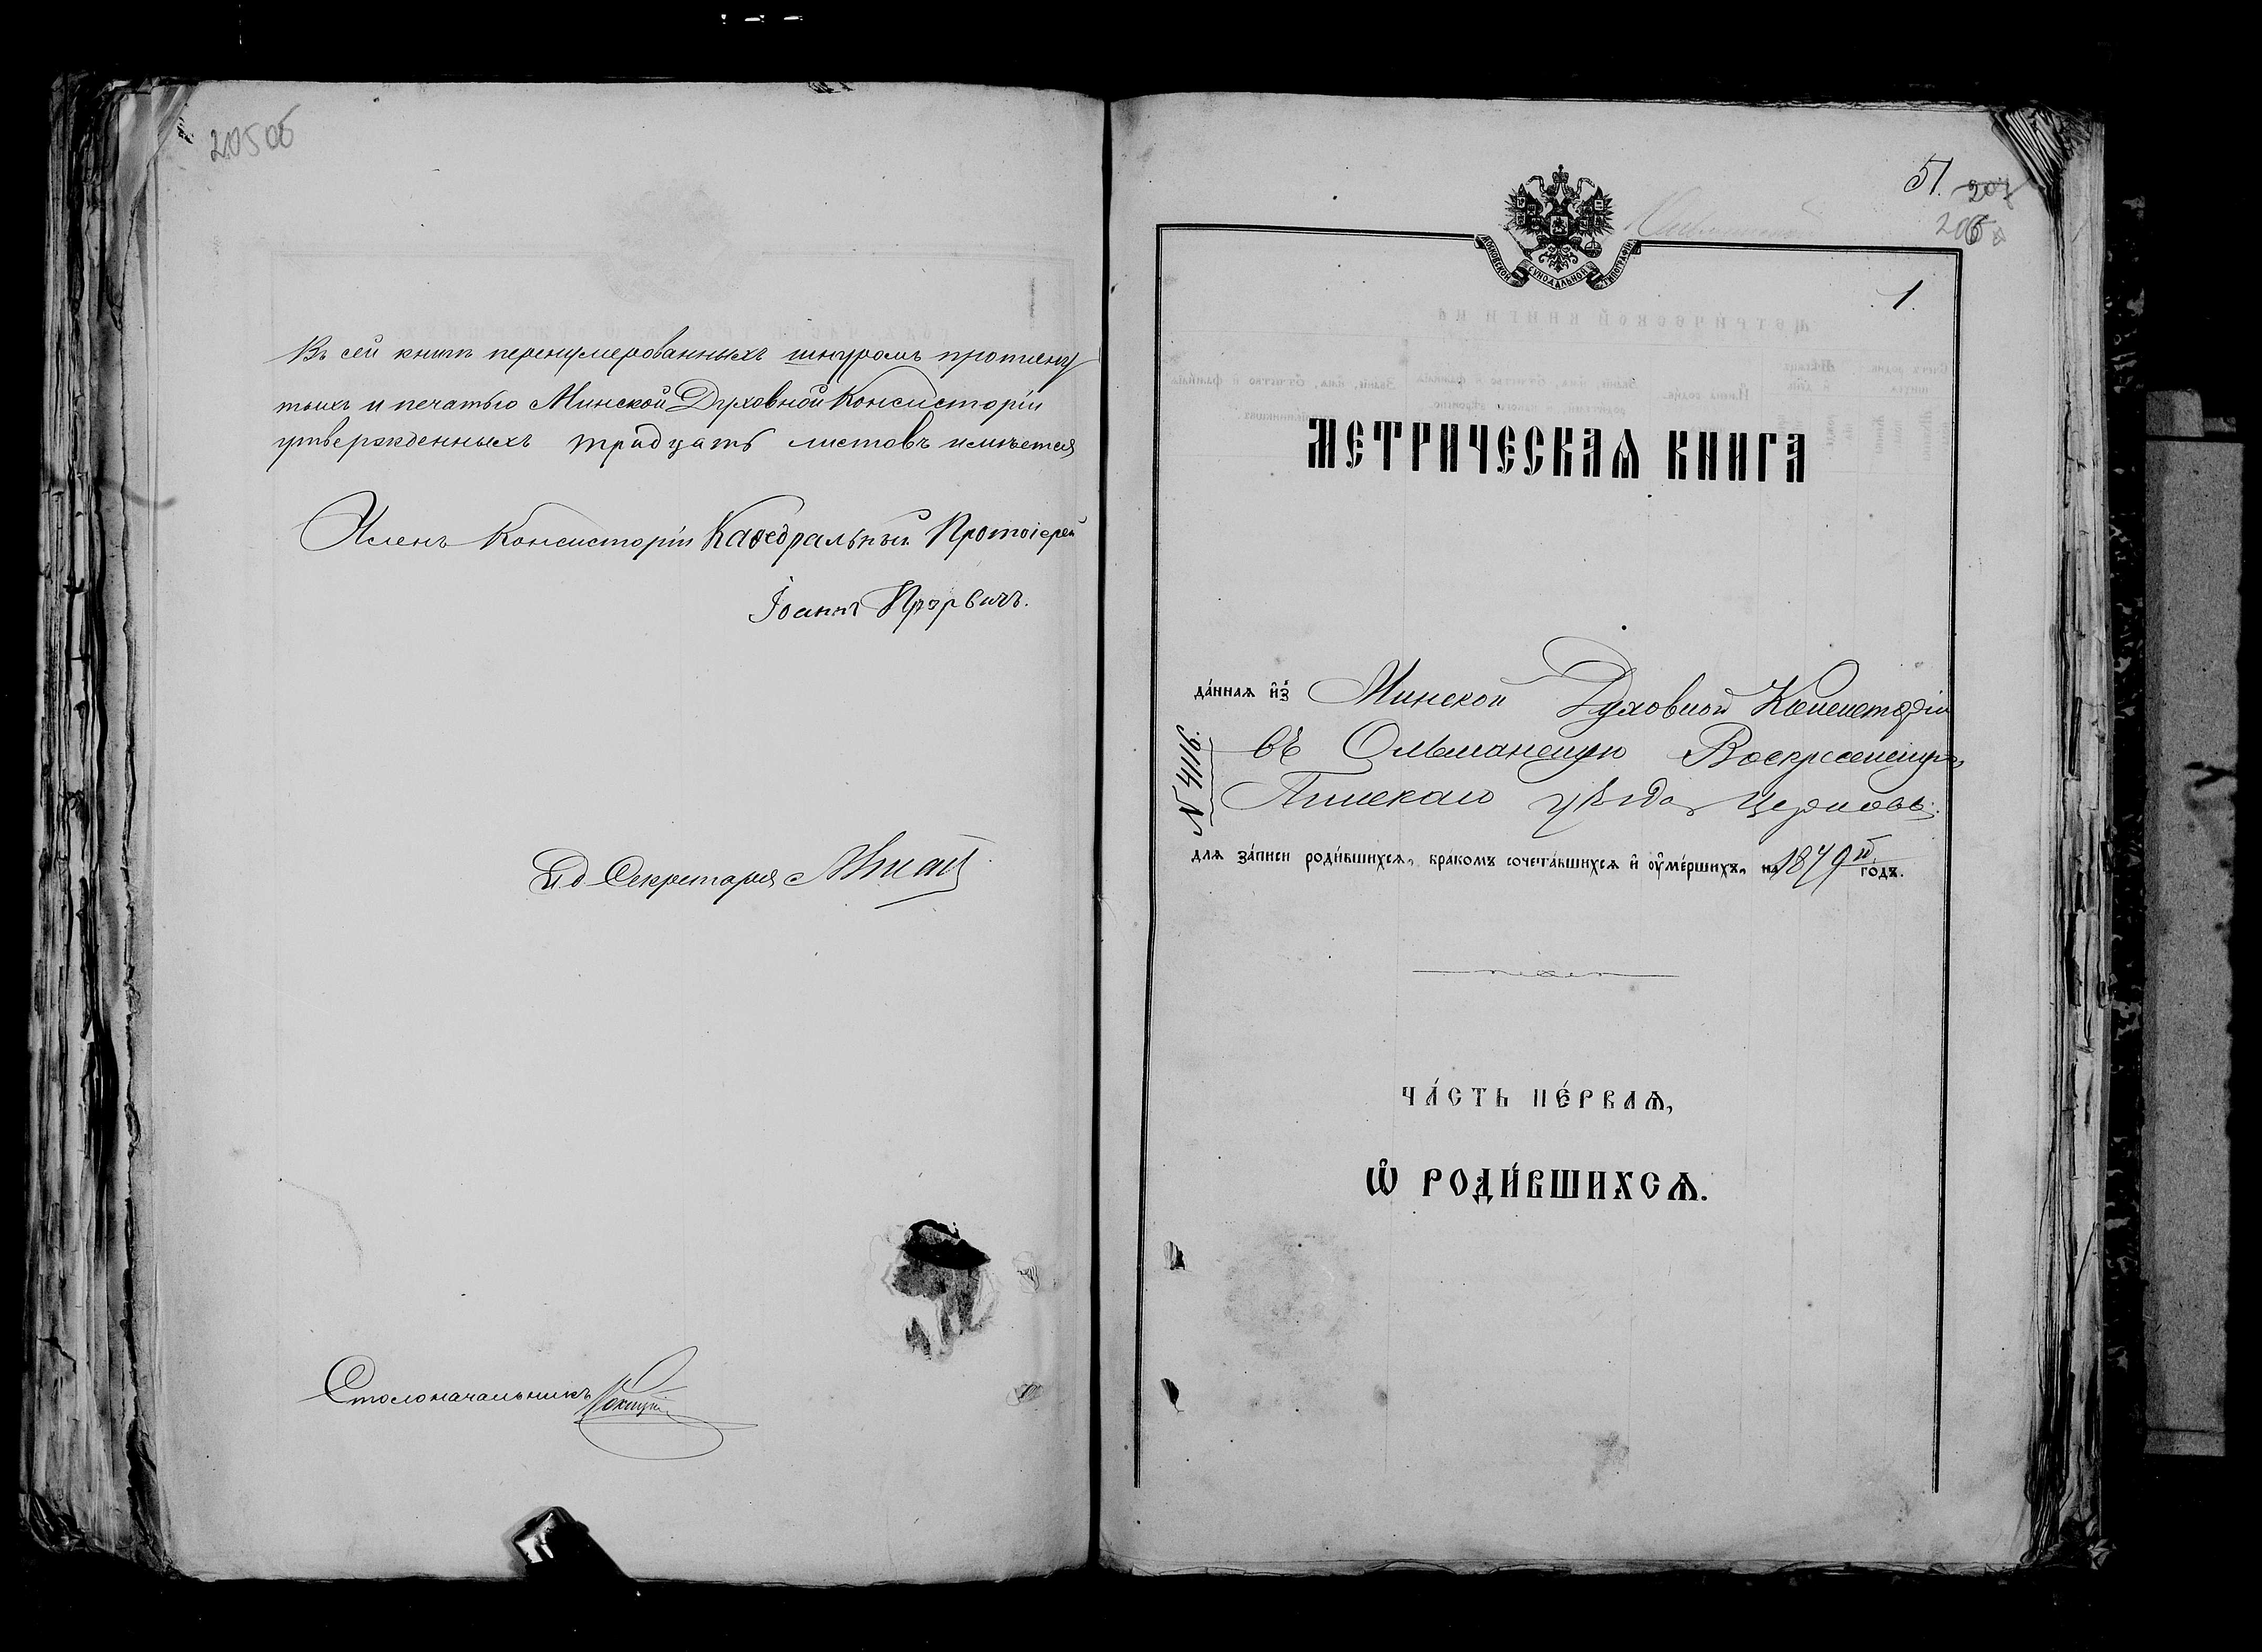 205об
Въ сей книгѣ перенумерованныхъ шнуромъ протяну
тыхъ и печатью Минской Духовной Консисторіи
утвержденныхъ тридцать листовъ имѣется
Членъ Консисторіи Каѳедральный Протоіерей
Іоаннъ
И д Секретаря
Столоначальникъ
51.
206
МОСКОВСКОЙ СѴНОДАЛЬНОЙ ТИПОГРАФІИ
1.
МЕТРИЧЕСКАѦ КНИГА
да́ннаѧ и҆з̾ Минской Духовной Консисторіи
въ Ольманскую Воскресенскую
Пинскаго уѣзда церковь.
№ 4116.
длѧ за́писи роди́вшихсѧ, бра́комъ сочета́вшихсѧ и҆ ᲂу҆ме́ршихъ, на 1879й го́дъ.
ЧА́СТЬ ПЕ́РВАѦ,
Ѡ҆ РОДИ́ВШИХСѦ.